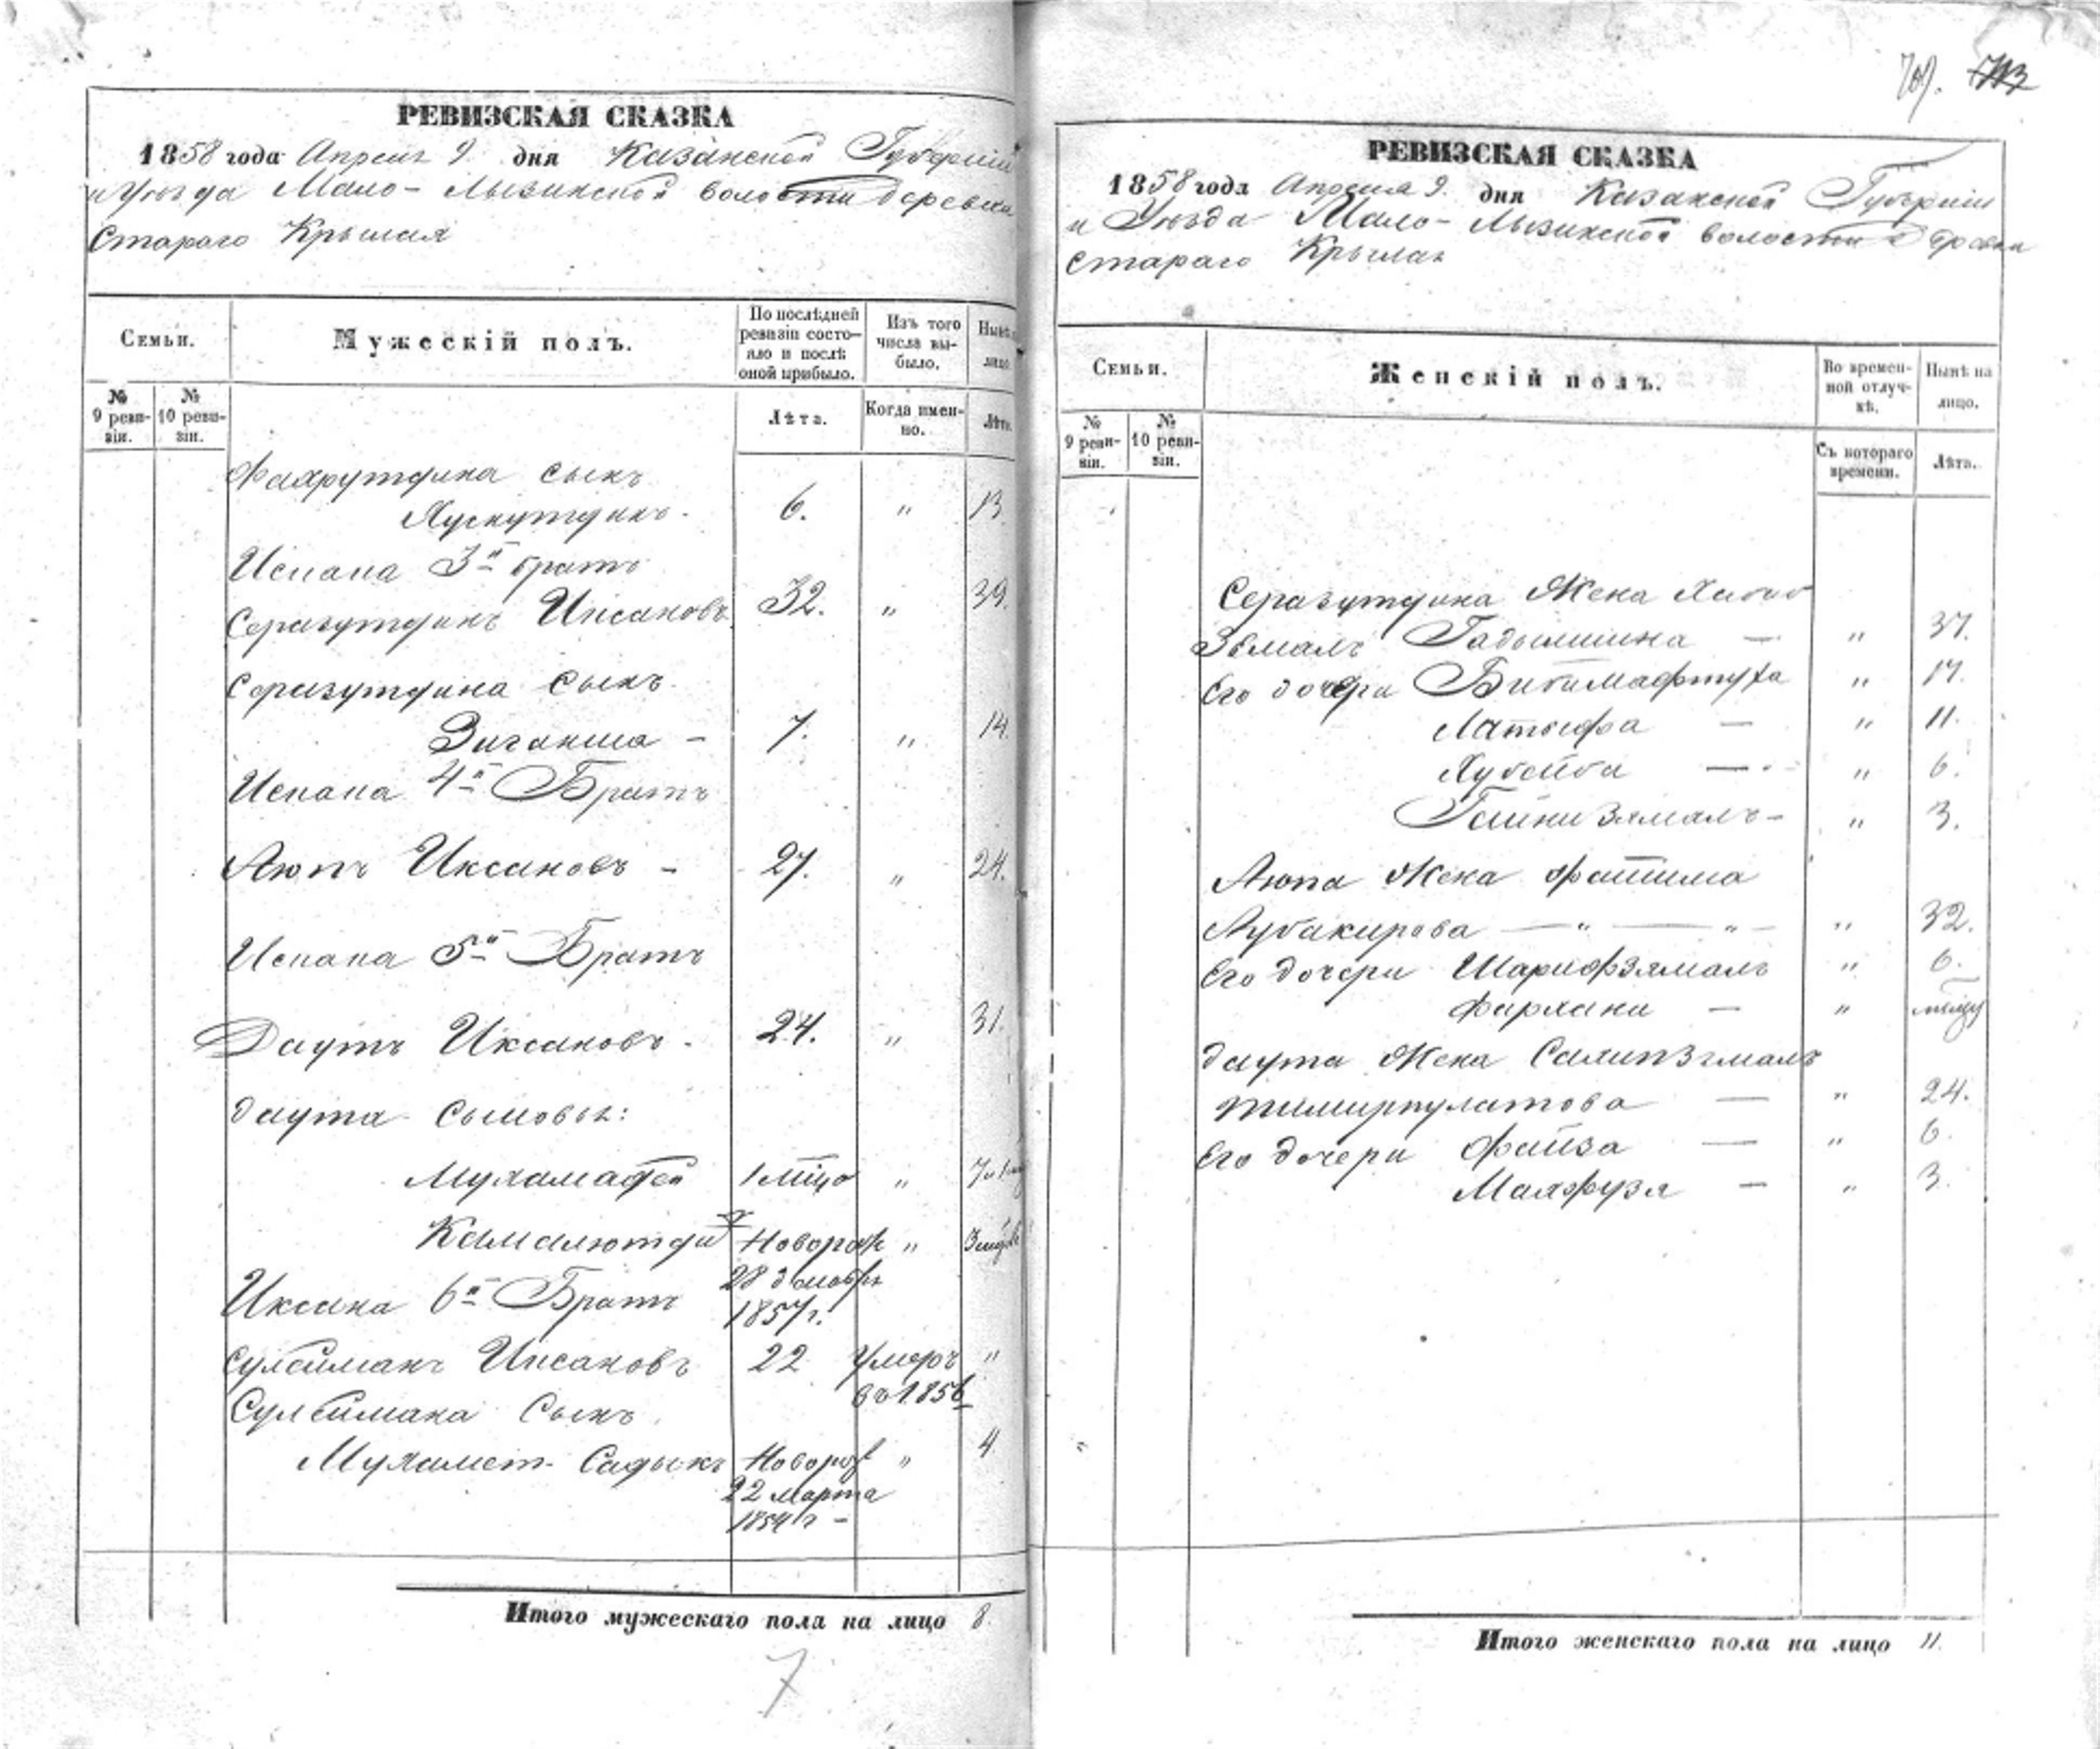 РЕВИЗСКАЯ СКАЗКА
1858 года Апреля 9 дня Казанской Губернии
и Уѣзда Мало-Лызинской волости деревни
Стараго Крышая
Семьи.
Мужескій полъ.
По послѣдней ревизіи состояло и послѣ оной прибыло.
Изъ того числа выбыло.
Нынѣ лицо
№ 9 ревизіи.
№ 10 ревизіи.
Лѣта.
Когда именно.
Лѣта.
Фахрутдина сынъ
Хуснутдинъ - 6. " 13.
3й братъ
Серазутдинъ Иксановъ 32. " 39.
Серазутдина сынъ
Зиганша - 7. " 14.
4й Братъ
Аюпъ Иксановъ - 27. " 24.
5й Братъ
Даутъ Иксановъ - 24. " 31.
Даута сыновья:
Мухамадей "
Камалютди Новорож "
28
1857 г.
Иксана 6й Братъ
Сулейманъ Иксановъ 22 Умеръ "
въ 1856
Сулеймана Сынъ
Мухамет-Садыкъ Новорож " 4
22 марта
1854 г -
Итого мужескаго пола на лицо 8.
7
709. 713
РЕВИЗСКАЯ СКАЗКА
1858 года Апреля 9. дня Казанской Губерніи
и Уѣзда Мало-Лызинской волости
Стараго Крылая
Семьи.
Женскій полъ.
Во временной отлучкѣ.
Нынѣ на лицо.
№ 9 ревизіи.
№ 10 ревизіи.
Съ котораго времени.
Лѣта.
Серазутдина Жена Хабиб
Зямалъ - " 37.
Его дочери Бибимафтуха " 17.
Латыфа - " 11.
Хубейба - " 6.
Гайни Зямалъ - " 3.
Аюпа Жена Фатима
Абубакирова - " - " - " 32.
Его дочери Шарифзямалъ " 6.
- "
Даута Жена Салипзямалъ
Тимирпулатова - " 24.
Его дочери Файза - " 6.
Махфузя - " 3.
Итого женскаго пола на лицо 11.